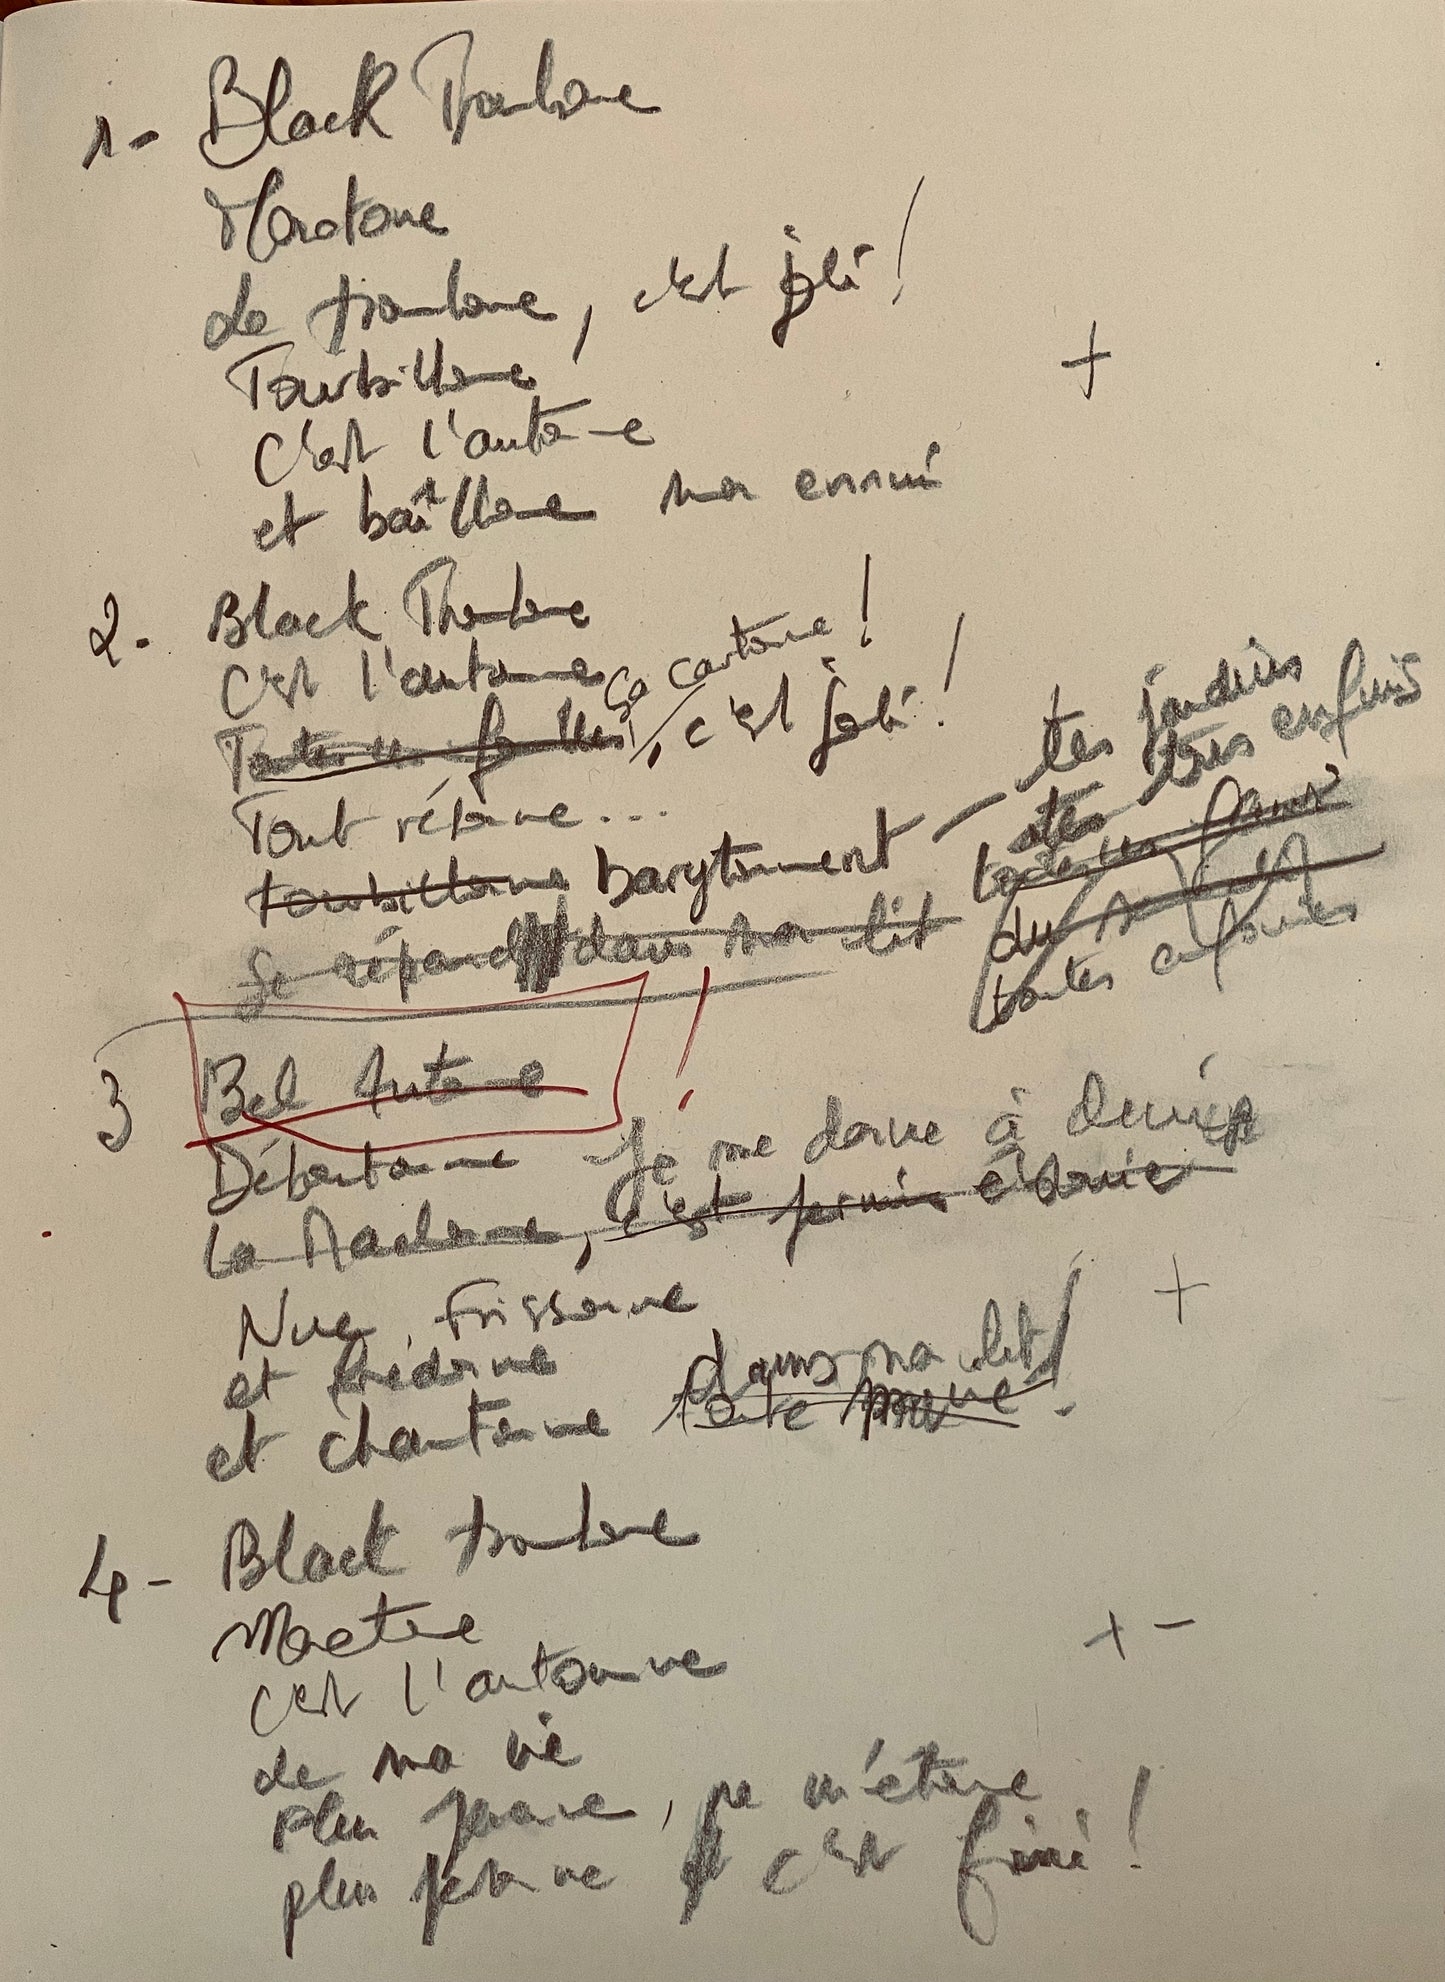 1- Black Trombone
Monotone
Le trombone, c'est joli !
Tourbillonne
+
C'est l'automne
et baîllonne mon ennui
2. Black Trombone
C'est l'automne Ça cartonne !
Toutes les feuilles, c'est joli !
Tout résonne...
tourbillonne barytonnent - tes jardins
très enfuis
Se répand dans mon lit
toutes enfouies
3 Bel Automne !
Déboutonne Je me donne à
La Madone, c'est permis
Nue, frissonne
+
et fredonne dans mon lit !
et chantonne toute
4- Black trombone
Monotone
+ -
C'est l'automne
de ma vie
plus personne, ne m'étonne
plus personne c'est fini !